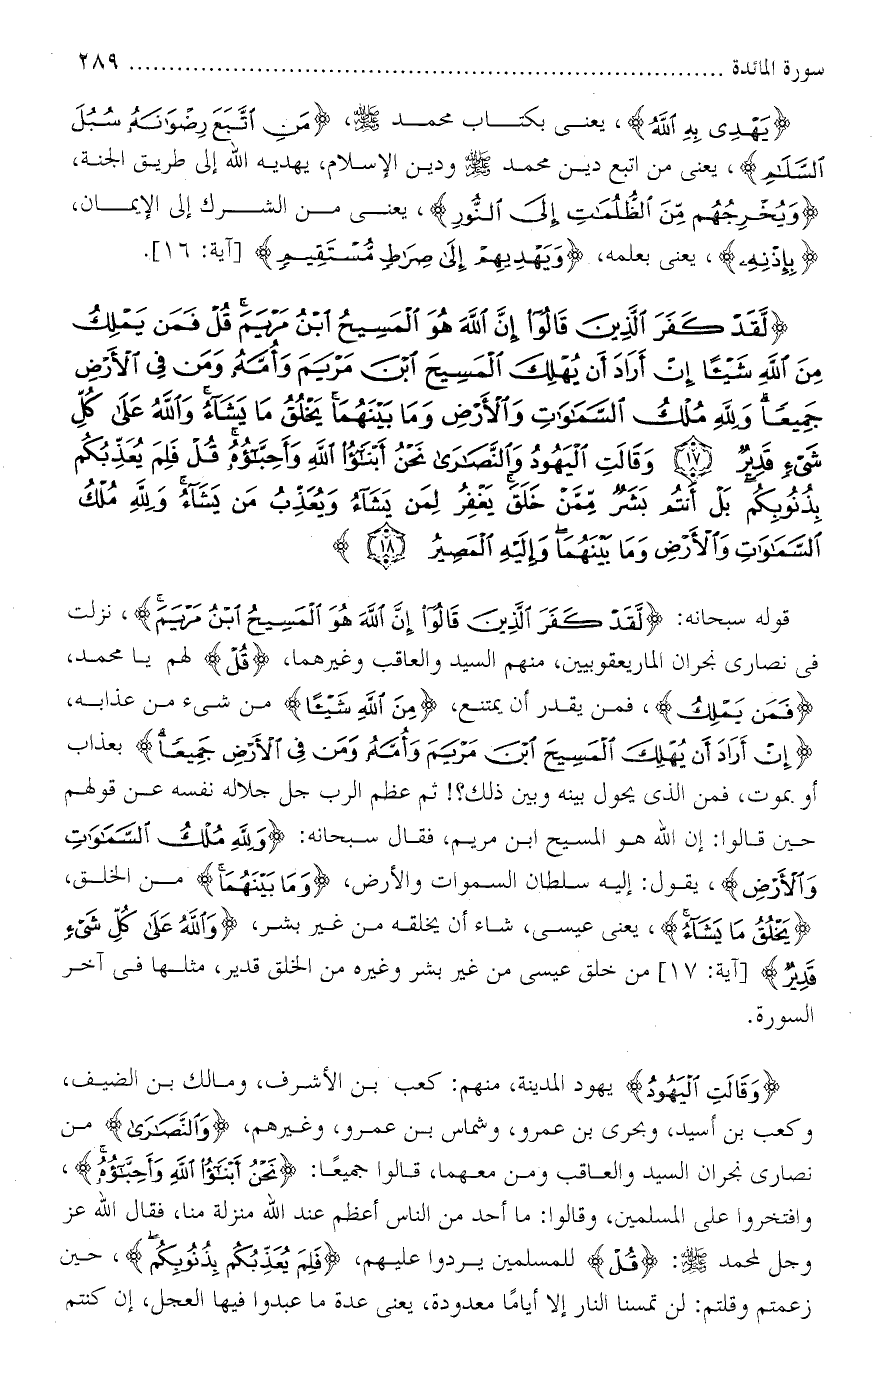 سورة المائدة ........................................................................... ٢٨٩
﴿يَهْدِى بِهِ ٱللَّهُ﴾، يعنى بكتاب محمد ﷺ، ﴿مَنِ ٱتَّبَعَ رِضْوَٰنَهُۥ سُبُلَ
ٱلسَّلَٰمِ﴾، يعنى من اتبع دين محمد ﷺ ودين الإسلام، يهديه الله إلى طريق الجنة،
﴿وَيُخْرِجُهُم مِّنَ ٱلظُّلُمَٰتِ إِلَى ٱلنُّورِ﴾، يعنى من الشرك إلى الإيمان،
﴿بِإِذْنِهِۦ﴾، يعنى بعلمه، ﴿وَيَهْدِيهِمْ إِلَىٰ صِرَٰطٍ مُّسْتَقِيمٍ﴾ [آية: ١٦].
﴿لَقَدْ كَفَرَ ٱلَّذِينَ قَالُوٓا۟ إِنَّ ٱللَّهَ هُوَ ٱلْمَسِيحُ ٱبْنُ مَرْيَمَ ۚ قُلْ فَمَن يَمْلِكُ
مِنَ ٱللَّهِ شَيْـًٔا إِنْ أَرَادَ أَن يُهْلِكَ ٱلْمَسِيحَ ٱبْنَ مَرْيَمَ وَأُمَّهُۥ وَمَن فِى ٱلْأَرْضِ
جَمِيعًا ۗ وَلِلَّهِ مُلْكُ ٱلسَّمَٰوَٰتِ وَٱلْأَرْضِ وَمَا بَيْنَهُمَا ۚ يَخْلُقُ مَا يَشَآءُ ۚ وَٱللَّهُ عَلَىٰ كُلِّ
شَىْءٍ قَدِيرٌ ﴿١٧﴾ وَقَالَتِ ٱلْيَهُودُ وَٱلنَّصَٰرَىٰ نَحْنُ أَبْنَٰٓؤُا۟ ٱللَّهِ وَأَحِبَّٰٓؤُهُۥ ۚ قُلْ فَلِمَ يُعَذِّبُكُم
بِذُنُوبِكُم ۖ بَلْ أَنتُم بَشَرٌ مِّمَّنْ خَلَقَ ۚ يَغْفِرُ لِمَن يَشَآءُ وَيُعَذِّبُ مَن يَشَآءُ ۚ وَلِلَّهِ مُلْكُ
ٱلسَّمَٰوَٰتِ وَٱلْأَرْضِ وَمَا بَيْنَهُمَا ۖ وَإِلَيْهِ ٱلْمَصِيرُ ﴿١٨﴾ ﴾
قوله سبحانه: ﴿لَقَدْ كَفَرَ ٱلَّذِينَ قَالُوٓا۟ إِنَّ ٱللَّهَ هُوَ ٱلْمَسِيحُ ٱبْنُ مَرْيَمَ ۚ﴾، نزلت
فى نصارى نجران الماريعقوبيين، منهم السيد والعاقب وغيرهما، ﴿قُلْ﴾ لهم يا محمد،
﴿فَمَن يَمْلِكُ﴾، فمن يقدر أن يمتنع، ﴿مِنَ ٱللَّهِ شَيْـًٔا﴾ من شىء من عذابه،
﴿إِنْ أَرَادَ أَن يُهْلِكَ ٱلْمَسِيحَ ٱبْنَ مَرْيَمَ وَأُمَّهُۥ وَمَن فِى ٱلْأَرْضِ جَمِيعًا ۗ﴾ بعذاب
أو بموت، فمن الذى يحول بينه وبين ذلك؟! ثم عظم الرب جل جلاله نفسه عن قولهم
حين قالوا: إن الله هو المسيح ابن مريم، فقال سبحانه: ﴿وَلِلَّهِ مُلْكُ ٱلسَّمَٰوَٰتِ
وَٱلْأَرْضِ﴾، يقول: إليه سلطان السموات والأرض، ﴿وَمَا بَيْنَهُمَا ۚ﴾ من الخلق،
﴿يَخْلُقُ مَا يَشَآءُ ۚ﴾، يعنى عيسى، شاء أن يخلقه من غير بشر، ﴿وَٱللَّهُ عَلَىٰ كُلِّ شَىْءٍ
قَدِيرٌ﴾ [آية: ١٧] من خلق عيسى من غير بشر وغيره من الخلق قدير، مثلها فى آخر
السورة.
﴿وَقَالَتِ ٱلْيَهُودُ﴾ يهود المدينة، منهم: كعب بن الأشرف، ومالك بن الضيف،
وكعب بن أسيد، وبحرى بن عمرو، وشماس بن عمرو، وغيرهم، ﴿وَٱلنَّصَٰرَىٰ﴾ من
نصارى نجران السيد والعاقب ومن معهما، قالوا جميعًا: ﴿نَحْنُ أَبْنَٰٓؤُا۟ ٱللَّهِ وَأَحِبَّٰٓؤُهُۥ ۚ﴾،
وافتخروا على المسلمين، وقالوا: ما أحد من الناس أعظم عند الله منزلة منا، فقال الله عز
وجل لمحمد ﷺ: ﴿قُلْ﴾ للمسلمين يردوا عليهم، ﴿فَلِمَ يُعَذِّبُكُم بِذُنُوبِكُم ۖ﴾، حين
زعمتم وقلتم: لن تمسنا النار إلا أيامًا معدودة، يعنى عدة ما عبدوا فيها العجل، إن كنتم